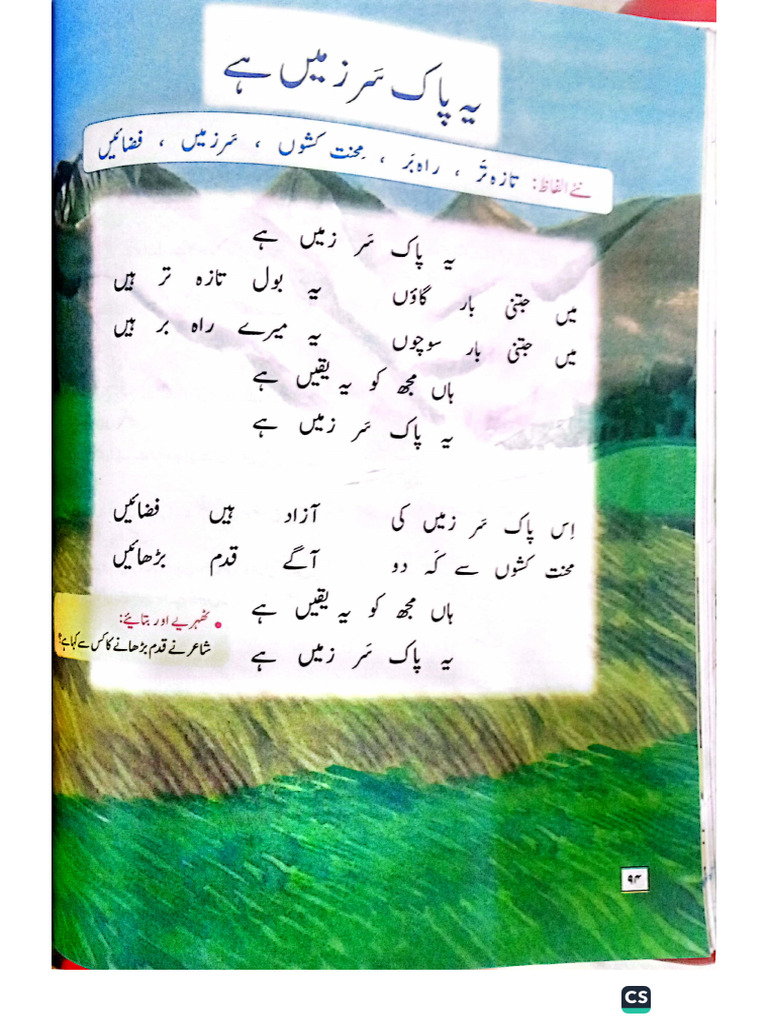 یہ پاک سَر زمیں ہے
نئے الفاظ: تازہ تَر ، راہ بَر ، مِحنت کشوں ، سَرزمیں ، فضائیں
یہ پاک سَر زمیں ہے
میں جتنی بار گاؤں یہ بول تازہ تر ہیں
میں جتنی بار سوچوں یہ میرے راہ بر ہیں
ہاں مجھ کو یہ یقیں ہے
یہ پاک سَر زمیں ہے
اِس پاک سَر زمیں کی آزاد ہیں فضائیں
محنت کشوں سے کَہ دو آگے قدم بڑھائیں
ہاں مجھ کو یہ یقیں ہے
یہ پاک سَر زمیں ہے
• ٹھہریے اور بتائیے:
شاعر نے قدم بڑھانے کا کس سے کہا ہے؟
۹۴
CS